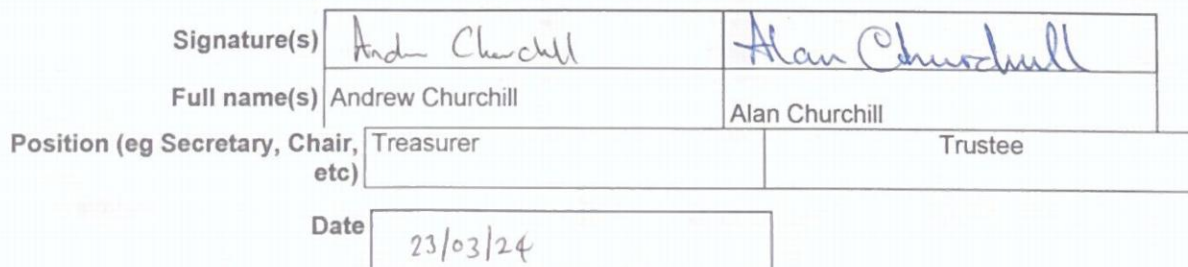 Signature(s) Andrew Churchill Alan Churchill
Full name(s) Andrew Churchill Alan Churchill
Position (eg Secretary, Chair, etc) Treasurer Trustee
Date 23/03/24